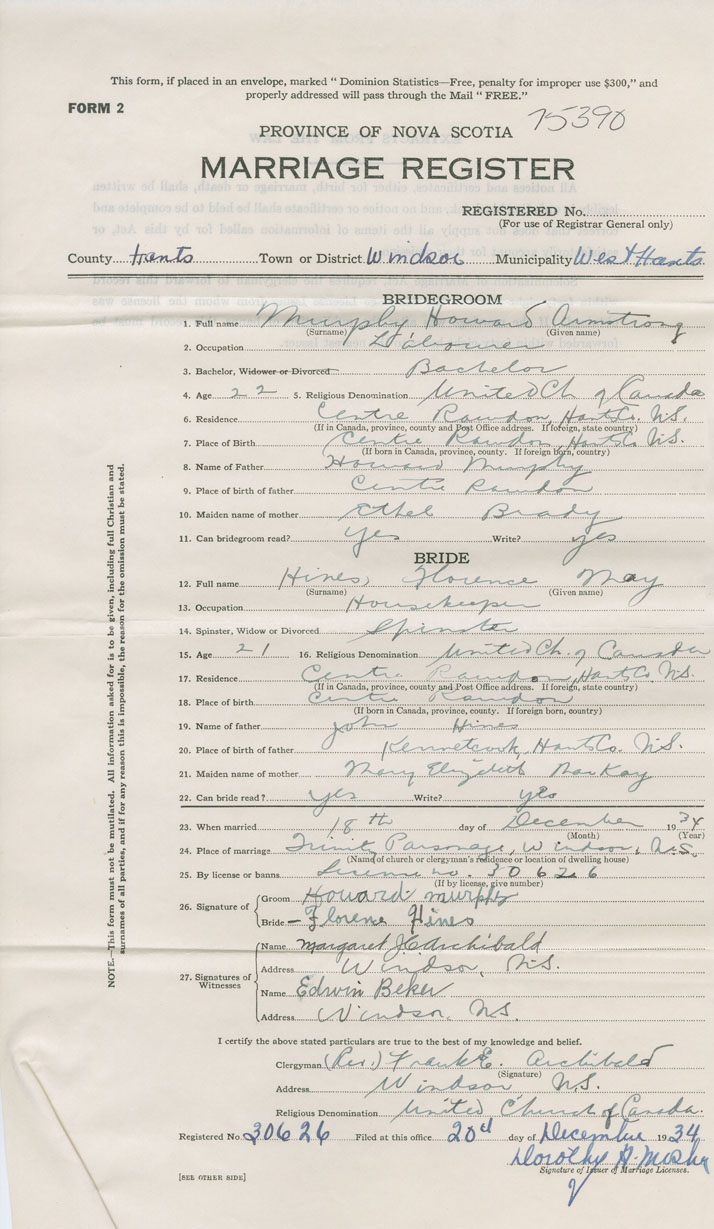 This form, if placed in an envelope, marked " Dominion Statistics—Free, penalty for improper use $300," and
properly addressed will pass through the Mail " FREE."
FORM 2
75390
PROVINCE OF NOVA SCOTIA
MARRIAGE REGISTER
REGISTERED No.
(For use of Registrar General only)
County Hants Town or District Windsor Municipality West Hants
BRIDEGROOM
1. Full name Murphy Howard Armstrong
(Surname) (Given name)
2. Occupation Labourer
3. Bachelor, Widower or Divorced Bachelor
4. Age 22 5. Religious Denomination United Ch of Canada
6. Residence Centre Rawdon, Hants Co. N.S.
(If in Canada, province, county and Post Office address. If foreign, state country)
7. Place of Birth Centre Rawdon, Hants Co. N.S.
(If born in Canada, province, county. If foreign born, country)
8. Name of Father Howard Murphy
9. Place of birth of father Centre Rawdon
10. Maiden name of mother Ethel Brady
11. Can bridegroom read? yes Write? yes
BRIDE
12. Full name Hines, Florence May
(Surname) (Given name)
13. Occupation Housekeeper
14. Spinster, Widow or Divorced Spinster
15. Age 21 16. Religious Denomination United Ch. of Canada
17. Residence Centre Rawdon, Hants Co N.S.
(If in Canada, province, county and Post Office address. If foreign, state country)
18. Place of birth Centre Rawdon
(If born in Canada, province, county. If foreign born, country)
19. Name of father John Hines
20. Place of birth of father Kennetcook, Hants Co. N.S.
21. Maiden name of mother Mary Elizabeth MacKay
22. Can bride read? yes Write? yes
23. When married 18th day of December 1934
(Month) (Year)
24. Place of marriage Trinity Parsonage, Windsor, N.S.
(Name of church or clergyman's residence or location of dwelling house)
25. By license or banns License no. 30626
(If by license, give number)
26. Signature of
Groom Howard murphy
Bride — Florence Hines
27. Signatures of Witnesses
Name Margaret J C Archibald
Address Windsor, N.S.
Name Edwin Beker
Address Windsor, N.S.
I certify the above stated particulars are true to the best of my knowledge and belief.
Clergyman (Rev.) Frank E. Archibald
(Signature)
Address Windsor N.S.
Religious Denomination United Church of Canada.
Registered No. 30626 Filed at this office 20th day of December 1934
Dorothy Mosher
Signature of Issuer of Marriage Licenses.
[SEE OTHER SIDE]
NOTE.—This form must not be mutilated. All information asked for is to be given, including full Christian and
surnames of all parties, and if for any reason this is impossible, the reason for the omission must be stated.